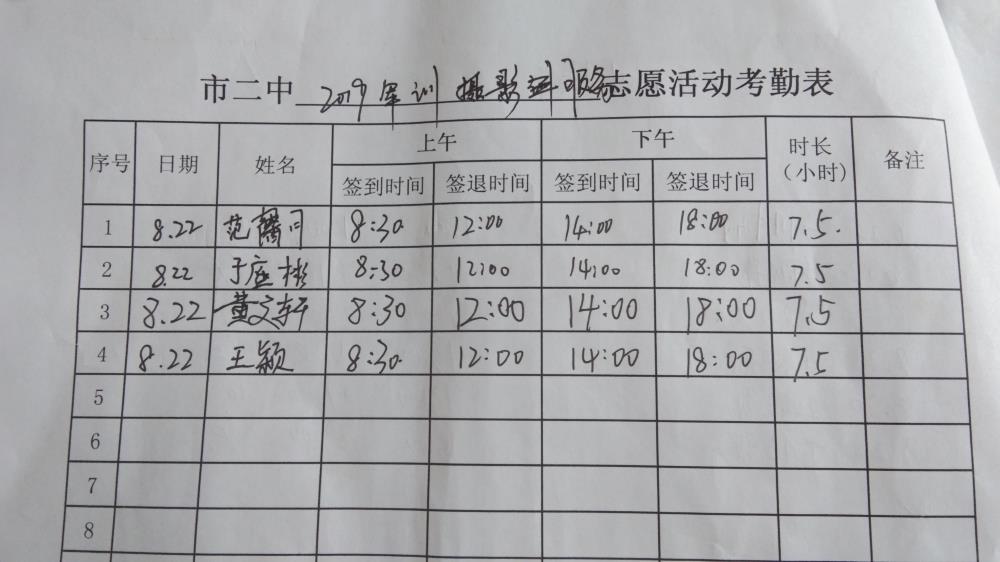 市二中 2019军训 摄影 志愿活动考勤表
序号 日期 姓名 上午 下午 时长(小时) 备注
签到时间 签退时间 签到时间 签退时间
1 8.22 范馨月 8:30 12:00 14:00 18:00 7.5.
2 8.22 于应彬 8:30 12:00 14:00 18:00 7.5
3 8.22 黄文轩 8:30 12:00 14:00 18:00 7.5
4 8.22 王颖 8:30 12:00 14:00 18:00 7.5
5
6
7
8